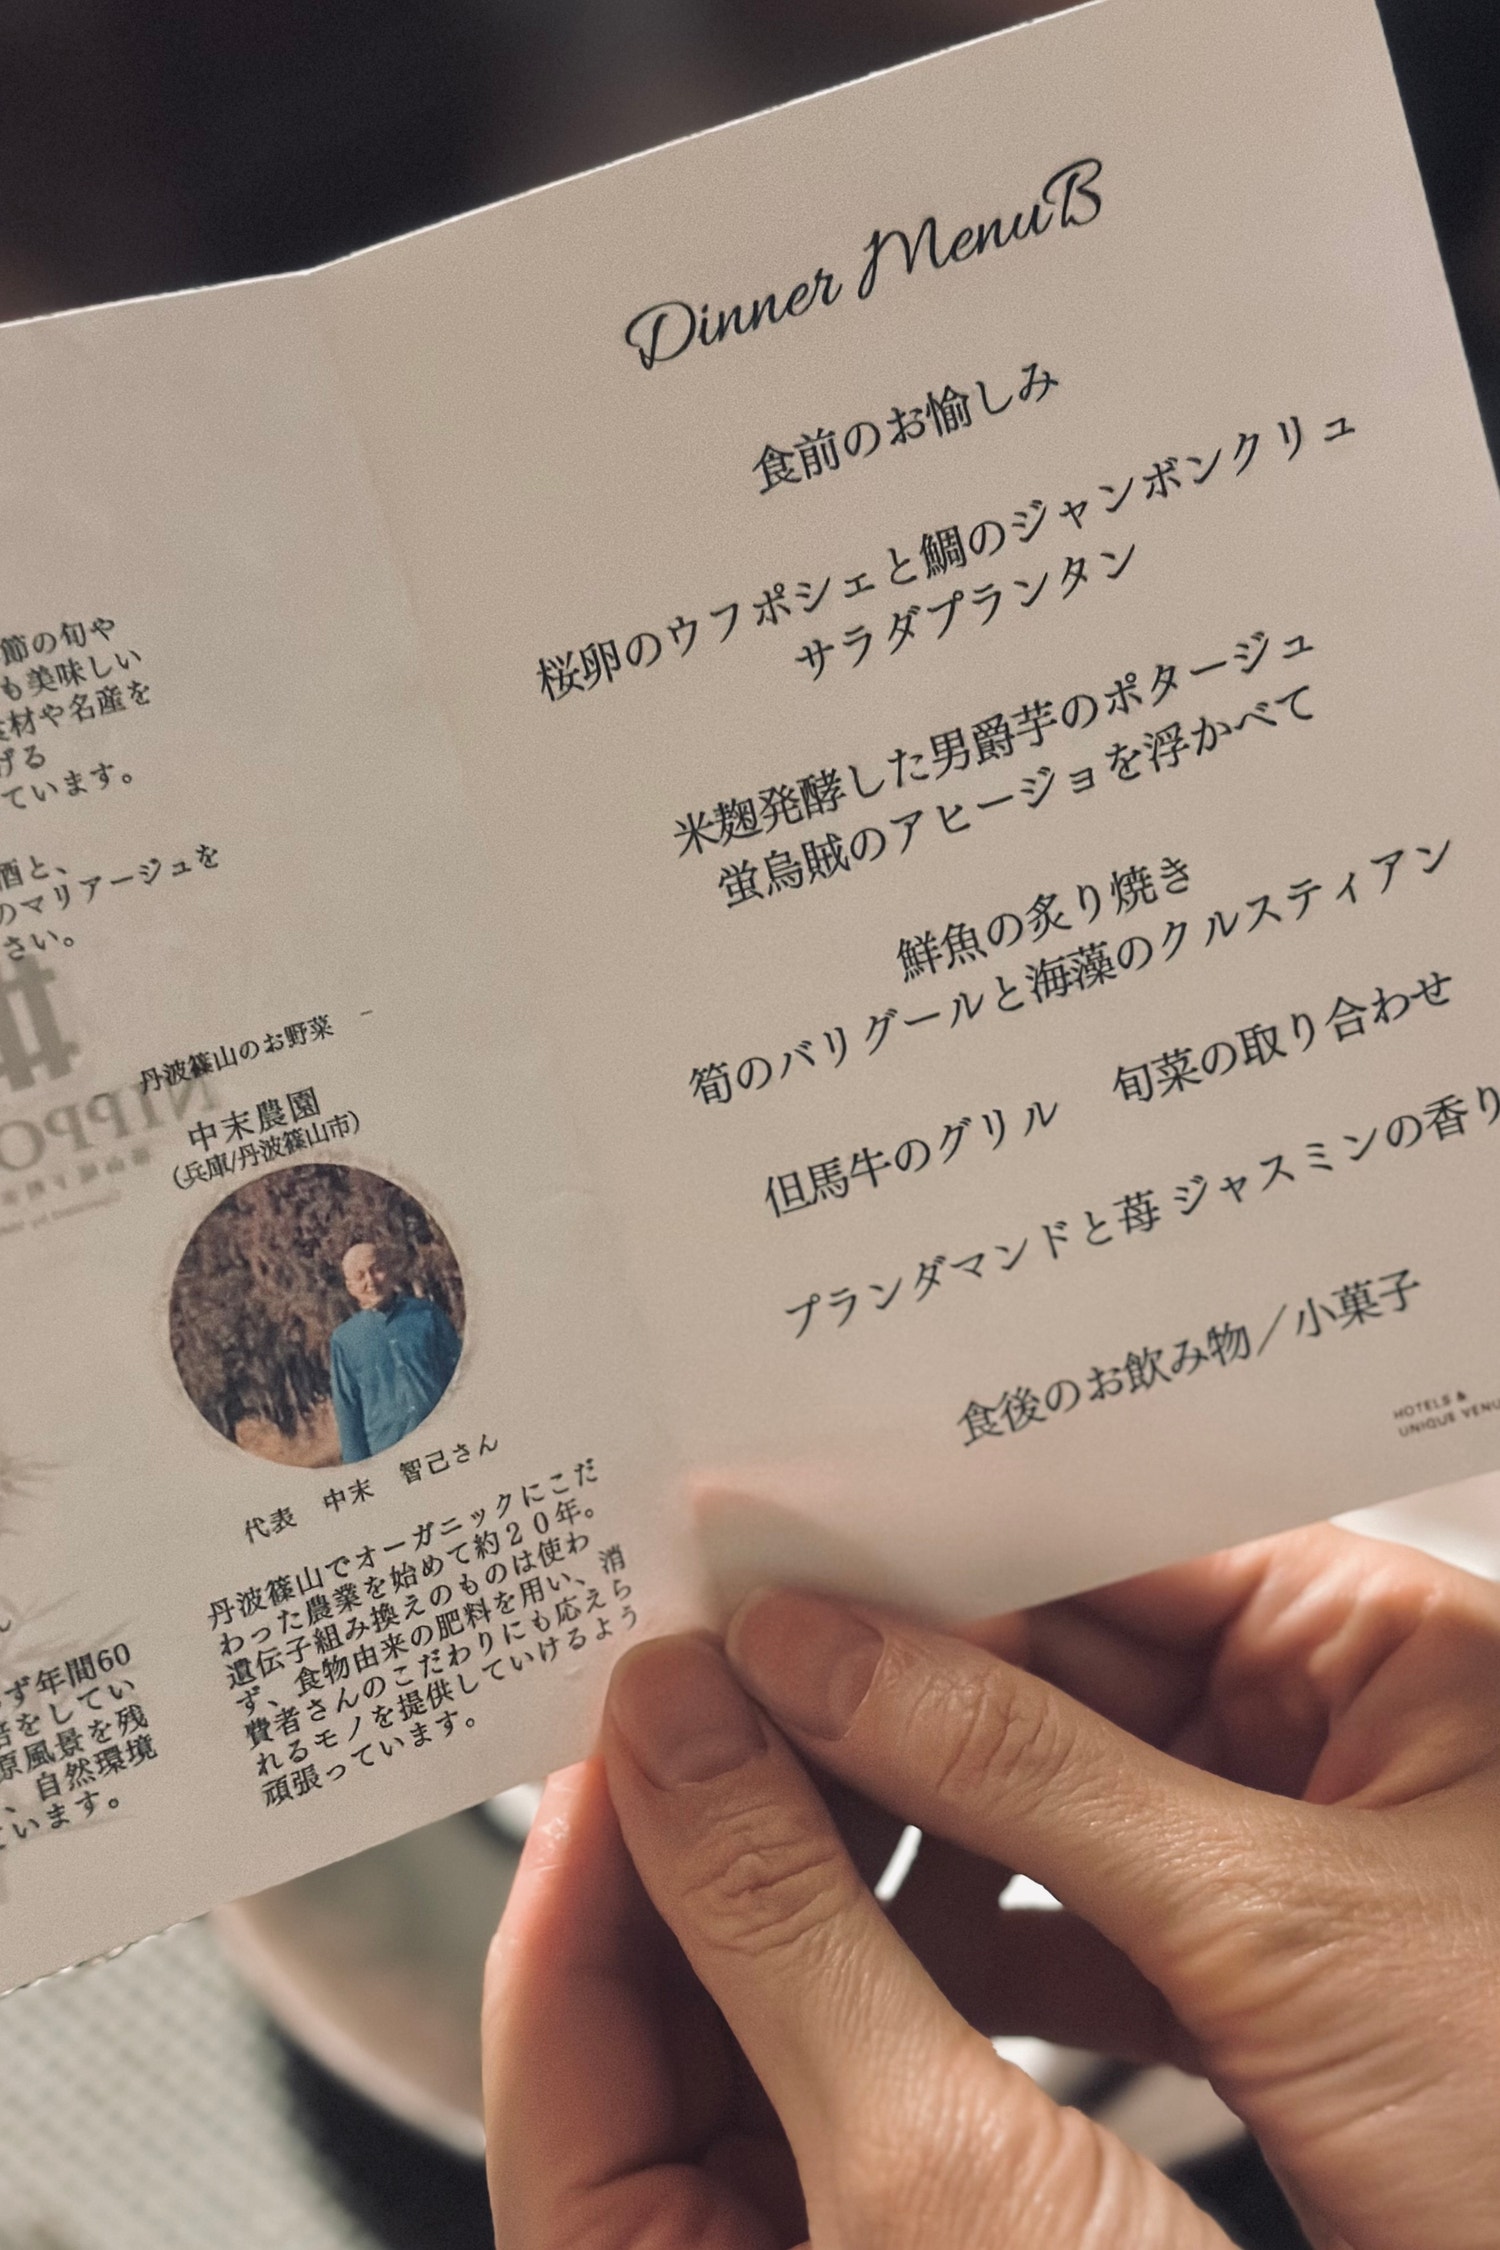 節の旬や
も美味しい
材や名産を
げる
ています。
酒と、
のマリアージュを
さい。
丹波篠山のお野菜 –
中末農園
(兵庫/丹波篠山市)
代表 中末 智己さん
丹波篠山でオーガニックにこだ
わった農業を始めて約20年。
遺伝子組み換えのものは使わ
ず、食物由来の肥料を用い、消
費者さんのこだわりにも応えら
れるモノを提供していけるよう
頑張っています。
ず年間60
をしてい
原風景を残
、自然環境
ています。
Dinner MenuB
食前のお愉しみ
桜卵のウフポシェと鯛のジャンボンクリュ
サラダプランタン
米麹発酵した男爵芋のポタージュ
蛍烏賊のアヒージョを浮かべて
鮮魚の炙り焼き
筍のバリグールと海藻のクルスティアン
但馬牛のグリル 旬菜の取り合わせ
ブランダマンドと苺 ジャスミンの香り
食後のお飲み物／小菓子
HOTELS &
UNIQUE VENU